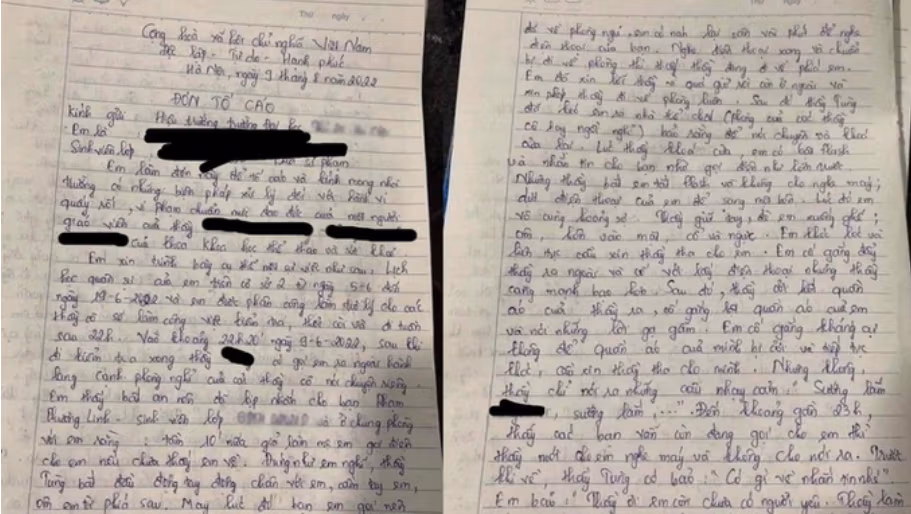 Thứ ngày
Cộng hoà xã hội chủ nghĩa Việt Nam
Độc lập - Tự do - Hạnh phúc
Hà Nội, ngày 9 tháng 8 năm 2022
ĐƠN TỐ CÁO
Kính gửi: Hiệu trưởng trường Đại học
Em là
Sinh viên lớp phạm
Em làm đơn này để tố cáo và kính mong nhà
trường có những biện pháp xử lý đối với hành vi
quấy rối, vi phạm chuẩn mực đạo đức của một người
giáo viên của thầy
của khoa khoa học thể thao và
Em xin trình bày cụ thể nội sự việc như sau: Lịch
học quân sự của em trên cơ sở 2 từ ngày 5-6 đến
ngày 19-6-2022 và em được phân công làm thư ký cho các
thầy cô sẽ làm công việc kiểm tra, thời gian đi tuần
sau 22h. Vào khoảng 22h20' ngày 9-6-2022, sau khi
đi kiểm tra xong thầy có gọi em ra ngoài hành
lang cạnh phòng nghỉ của các thầy cô nói chuyện riêng.
Em thấy bất an nên đã kịp nhắn cho bạn Phạm
Phương Linh - sinh viên lớp và ở chung phòng
với em rằng: tầm 10' nữa mà em gọi điện
cho em nếu chưa thấy em về. Đúng như em nghĩ, thầy
Tùng bắt đầu động tay động chân với em, cầm tay em,
ôm em từ phía sau. May lúc đó bạn em gọi nên
Thứ ngày
để về phòng ngủ, em có nán lại và phải để nghe
điện thoại của bạn. Nghe điện thoại xong và chuẩn
bị đi về phòng thì thấy thầy đang đi về phía em.
Em đã xin lỗi thầy vì quá giờ rồi còn ở ngoài và
xin phép thầy đi về phòng luôn. Sau đó thầy Tùng
kéo em ra nhà thể chất (phòng của các thầy
cô hay ngồi nghỉ) bảo rằng để nói chuyện và khoá
cửa lại. Lúc thầy khoá cửa, em có bật flash
và nhắn tin cho bạn nhờ gọi điện như lần trước.
Nhưng thầy bắt em tắt flash và không cho nghe máy;
dứt điện thoại của em để sang một bên. Lúc đó em
vô cùng hoảng sợ. Thầy giữ tay, đè em xuống ghế;
ôm, hôn vào mặt, cổ và ngực. Em khóc lóc và
liên tục cầu xin thầy tha cho em. Em cố gắng đẩy
thầy ra ngoài và với lấy điện thoại nhưng thầy
càng mạnh bạo hơn. Sau đó, thầy cởi hết quần
áo của thầy ra, cố gắng cởi quần áo của em
và nói những lời gạ gẫm. Em cố gắng kháng cự
không để quần áo của mình bị cởi và tiếp tục
khóc, cầu xin thầy tha cho mình. Nhưng không,
thầy chỉ nói ra những câu nhạy cảm: "Sướng lắm
, sướng lắm,...". Đến khoảng gần 23h,
thấy các bạn vẫn còn đang gọi cho em thì
thầy mới cho em nghe máy và không cho nói ra. Trước
khi về, thầy Tùng có bảo: "Có gì về nhắn tin nhé".
Em bảo: "Thầy ơi em còn chưa có người yêu. Thầy làm